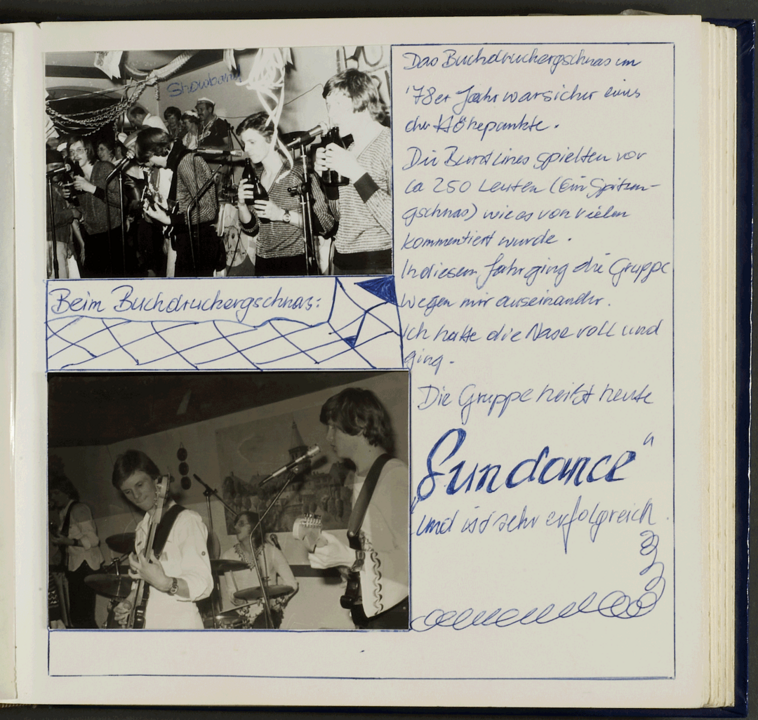 Showband
Das Buchdruckergschnas im
'78er Jahr war sicher eines
der Höhepunkte.
Die Burstlines spielten vor
ca 250 Leuten (Ein Spitzen-
gschnas) wie es von vielen
kommentiert wurde.
In diesem Jahr ging die Gruppe
wegen mir auseinander.
Ich hatte die Nase voll und
ging.
Beim Buchdruckergschnas:
Die Gruppe heißt heute
„Sundance"
und ist sehr erfolgreich.